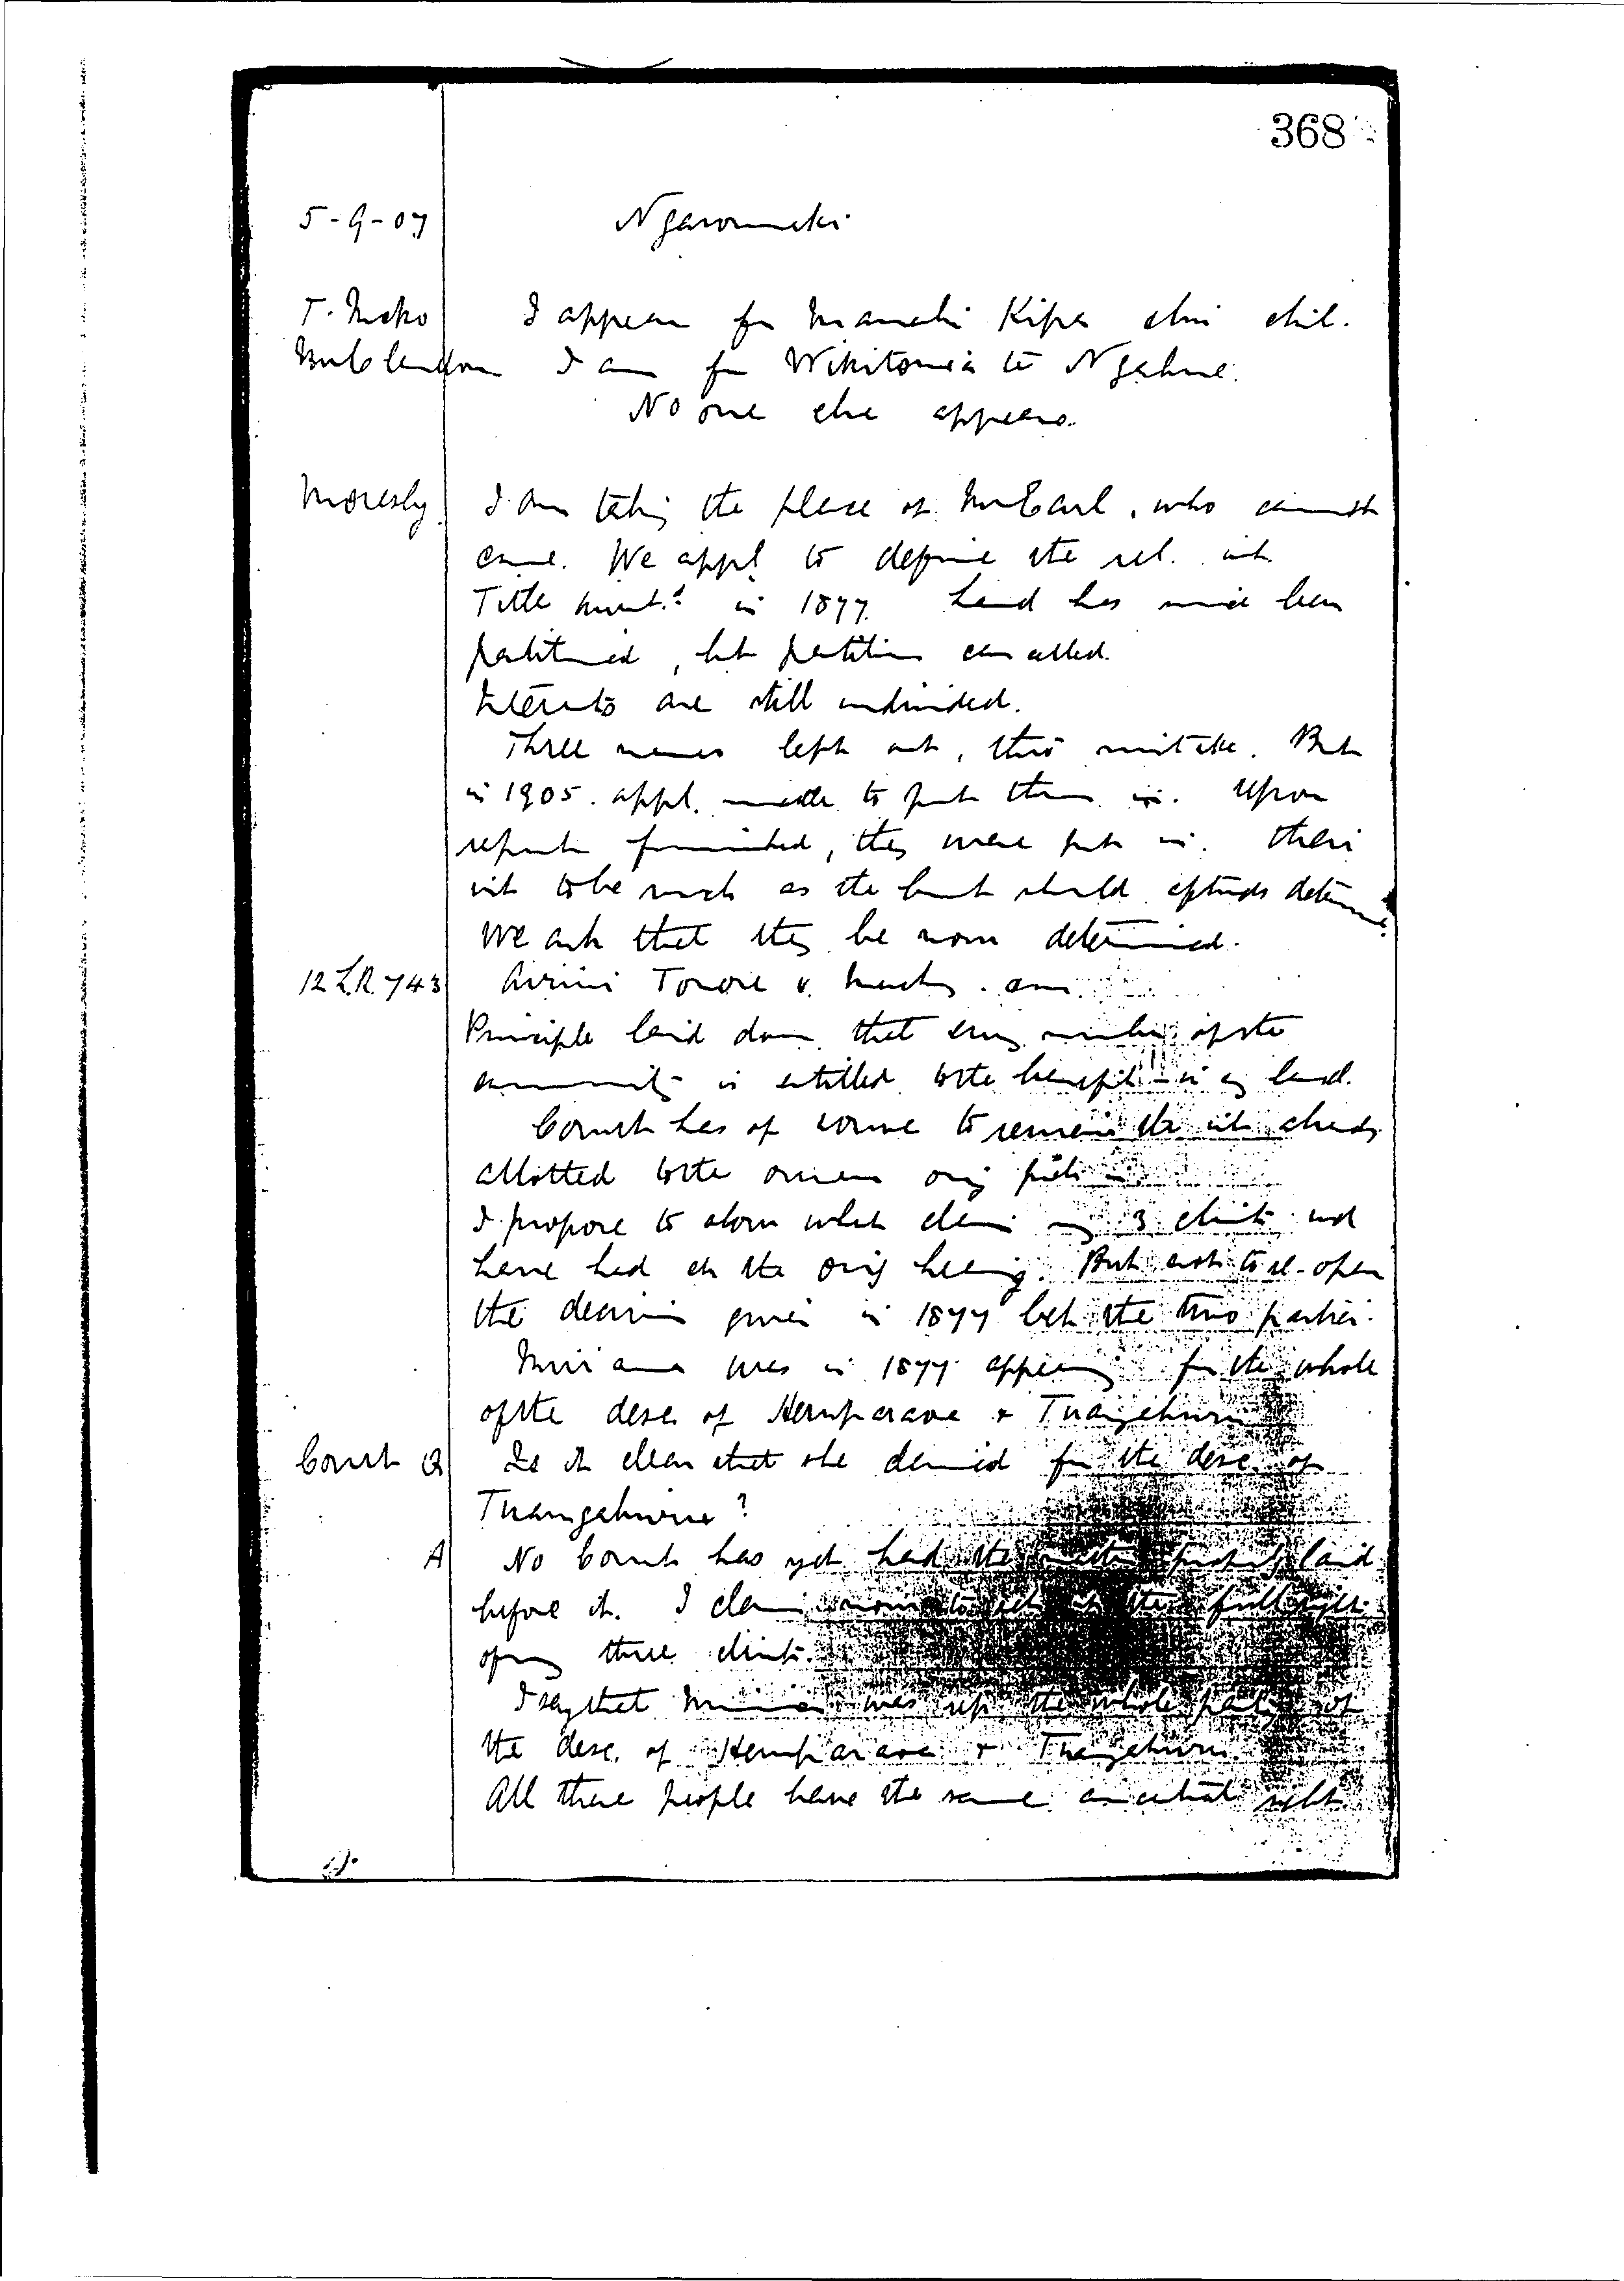 368
5-9-07 Ngaroumeki
T. Moko I appear for Manahi Kipa
I am for Wikitoria te Ngahue.
No one else appears.
Moresby I am taking the place of Mr Earl, who cannot
come. We appl. to define the rel. ints
Title invest.d in 1877. Land has since been
partitioned, but partition cancelled.
Interests are still undivided.
Three names left out, thro' mistake. But
in 1905. appl. made to put them in. Upon
report furnished, they were put in. Their
int to be such as the Court should afterwds determine.
We ask that they be now determined.
12 L.R. 743 Airini Tonore v.
Principle laid down that every member of the
community is entitled to the benefit in land.
Court has of course to the ints already
allotted to the owners orig put in
I propose to show what claim my 3 clients wd
have had at the orig hearing. But not to re-open
the decision given in 1877 bet the two parties.
Miriama was in 1877 appearing for the whole
of the desc of Hemiparawa & Tuangahuru
Court Q Is it clear that she claimed for the desc. of
Tuangahuru?
A No Court has yet had the matter properly laid
before it. I claim now to the full right
of my three clients.
I say that Miriama was rep the whole party of
the desc. of Hemiparawa & Tuangahuru.
All these people have the same ancestral right